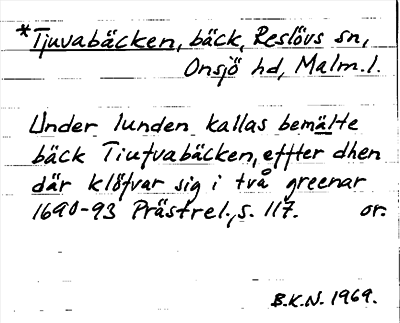 *Tjuvabäcken, bäck, Reslövs sn,
Onsjö hd, Malm. l.
Under lunden kallas bemälte
bäck Tiufvabäcken, effter dhen
där klöfvar sig i två greenar
1690-93 Prästrel., s. 117. or.
B.K.N. 1969.